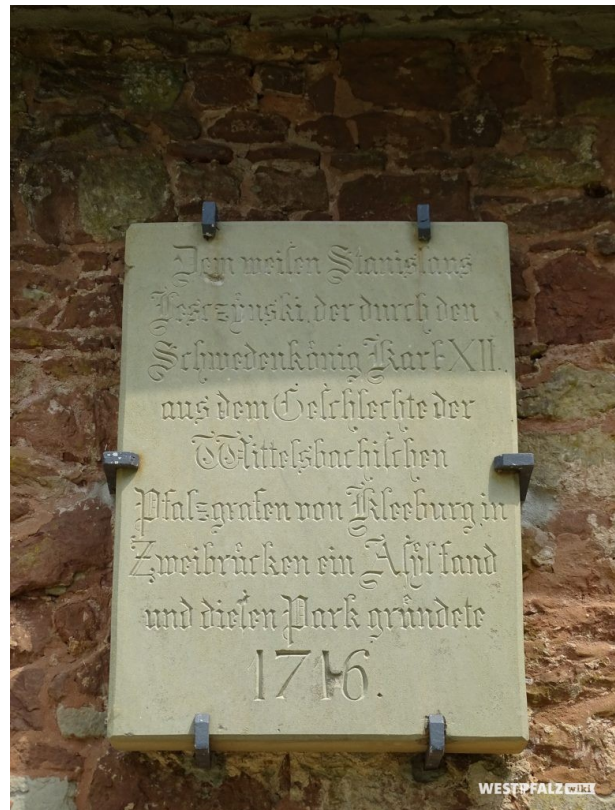 Dem weisen Stanislaus
Lesczynski, der durch den
Schwedenkönig Karl XII.
aus dem Geschlechte der
Wittelsbachischen
Pfalzgrafen von Kleeburg in
Zweibrücken ein Asyl fand
und diesen Park gründete
1716.
WESTPFALZ wiki